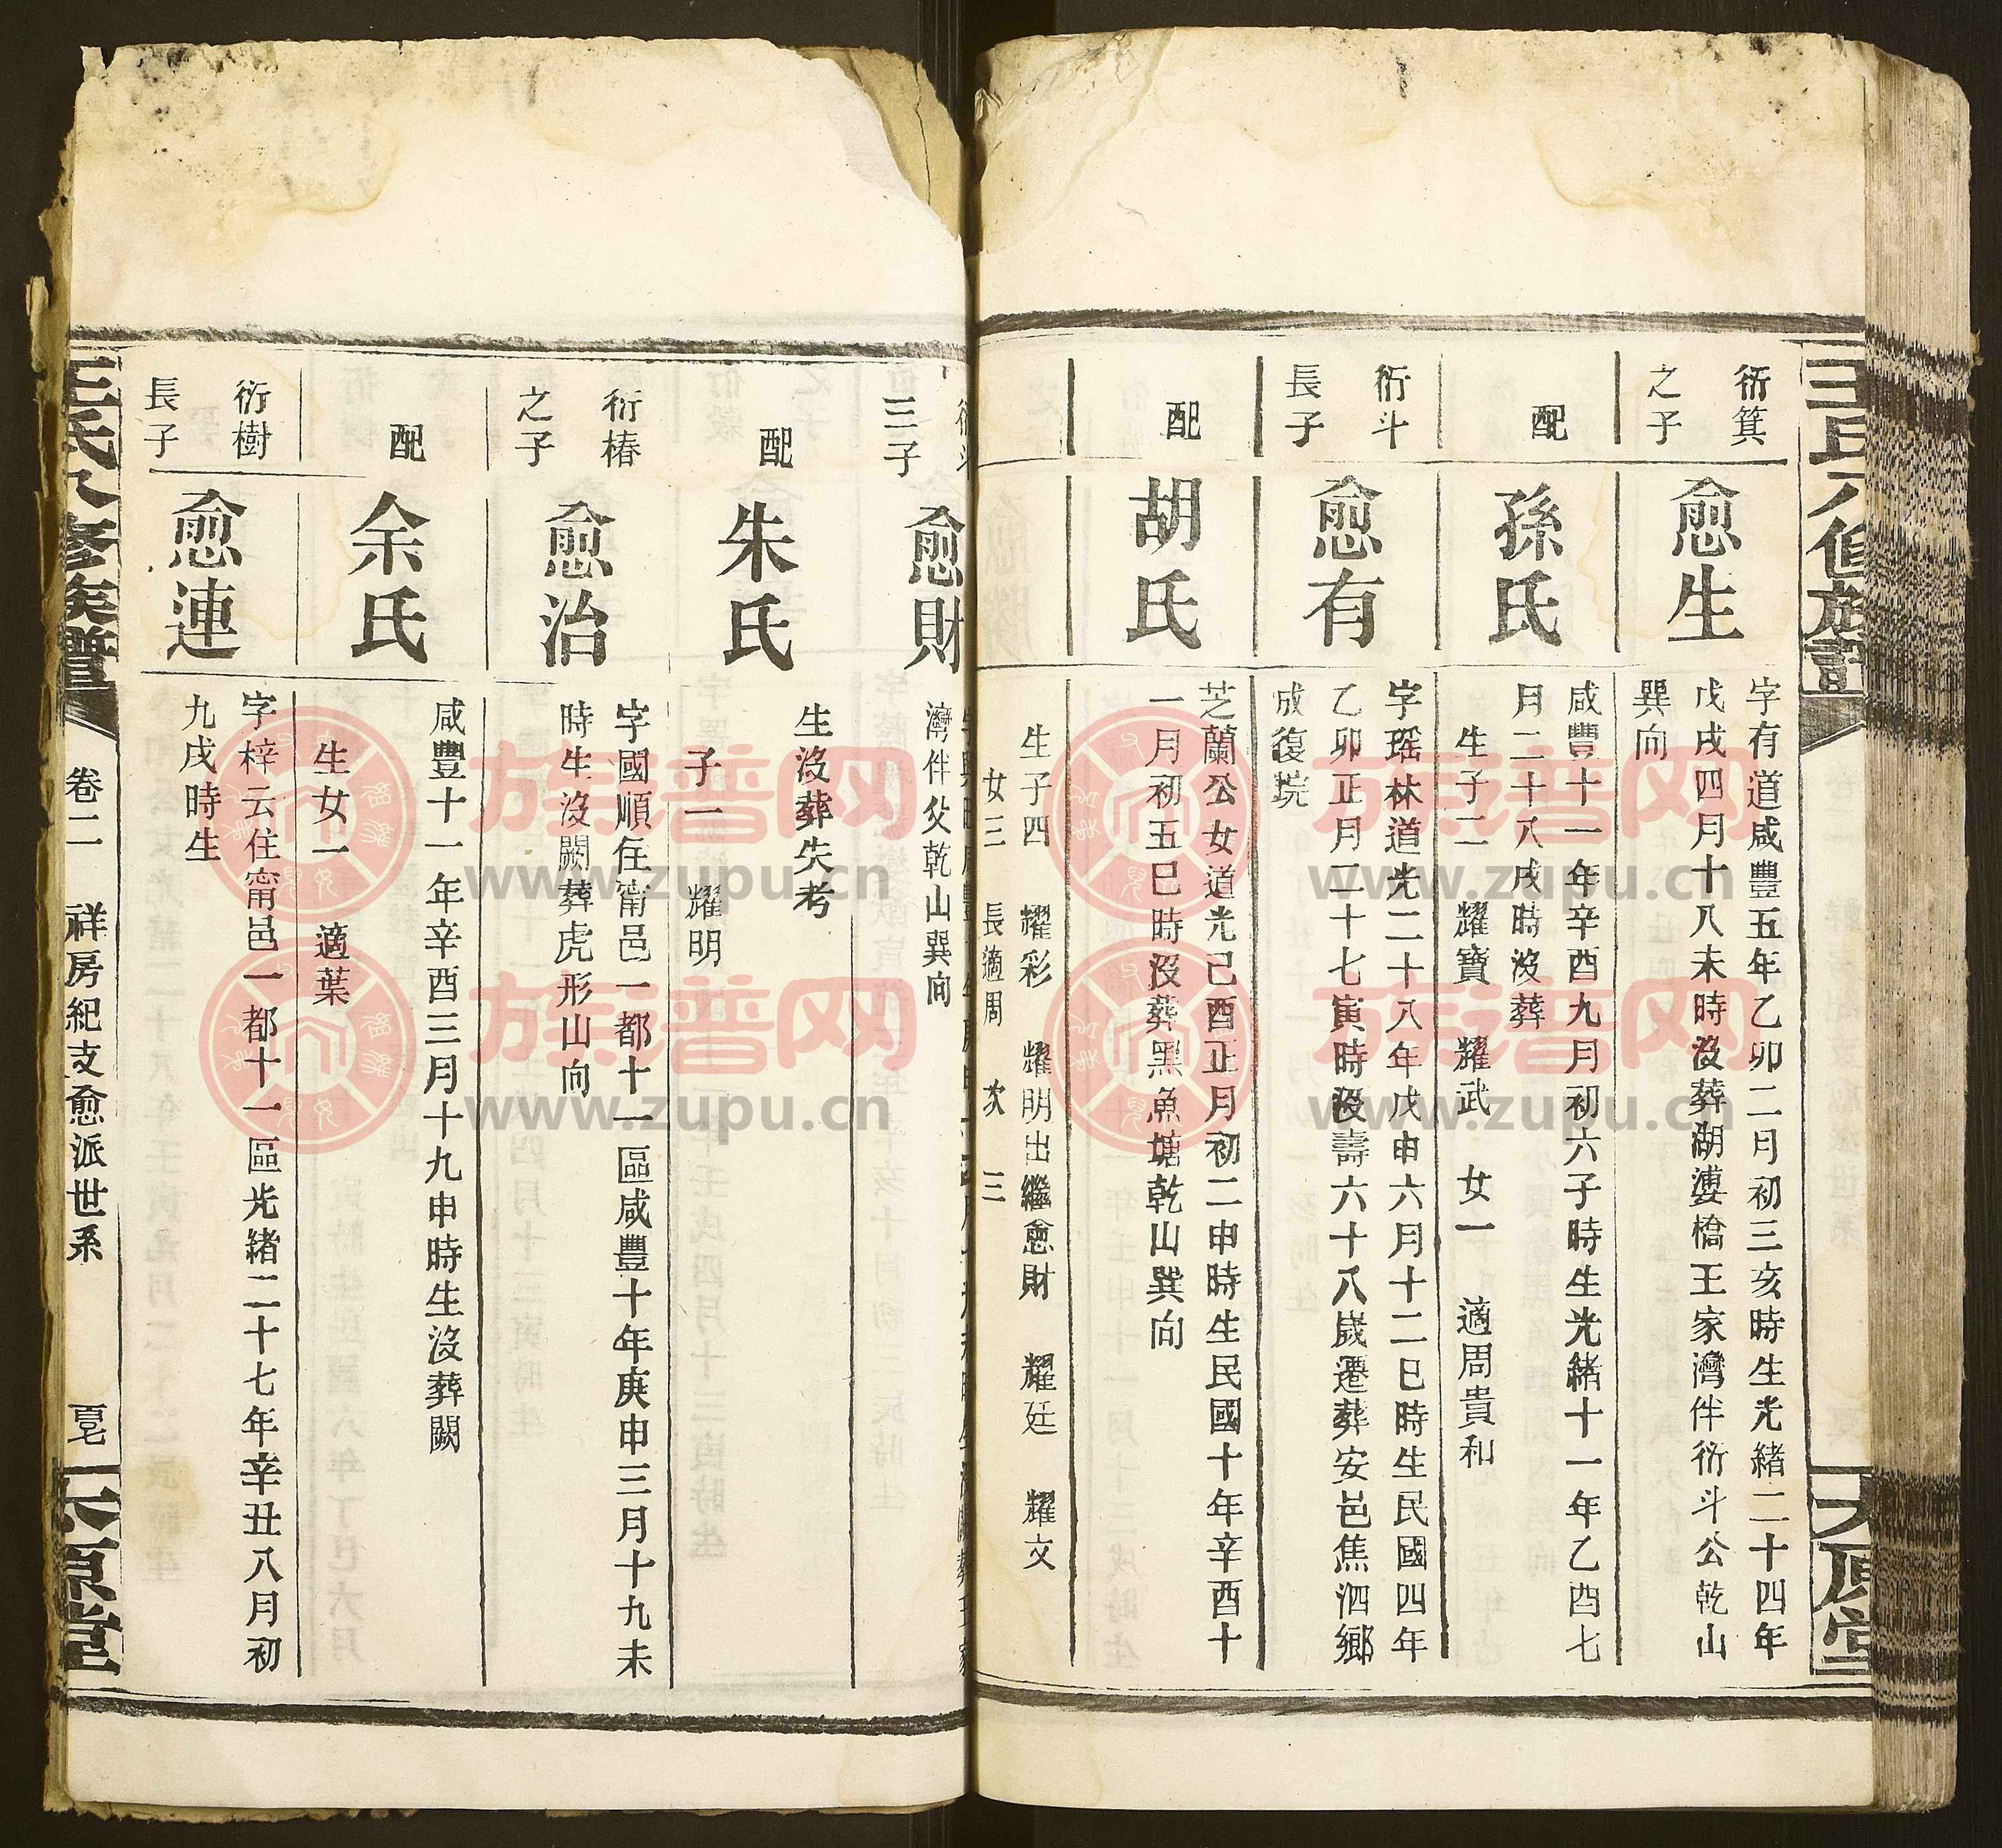 王氏八修族譜
太原堂
衍箕
之子
愈生
字有道咸豐五年乙卯二月初三亥時生光緒二十四年
戊戌四月十八未時沒葬湖漊橋王家灣伴衍斗公乾山
巽向
配
孫氏
咸豐十一年辛酉九月初六子時生光緒十一年乙酉七
月二十八戌時沒葬
生子二 耀寶 耀武 女一 適周貴和
衍斗
長子
愈有
字瑶林道光二十八年戊申六月十二巳時生民國四年
乙卯正月二十七寅時沒壽六十八歲遷葬安邑焦泗鄉
成復垸
配
胡氏
芝蘭公女道光己酉正月初二申時生民國十年辛酉十
一月初五巳時沒葬黑魚塘乾山巽向
生子四 耀彩 耀明出繼愈財 耀廷 耀文
女三 長適周 次 三
三子
愈財
灣伴父乾山巽向
配
朱氏
生沒葬失考
子一 耀明
衍椿
之子
愈治
字國順住甯邑一都十一區咸豐十年庚申三月十九未
時生沒闕葬虎形山向
配
余氏
咸豐十一年辛酉三月十九申時生沒葬闕
生女一 適葉
衍樹
長子
愈連
字梓云住甯邑一都十一區光緒二十七年辛丑八月初
九戌時生
王氏八修族譜
卷二 祥房紀支愈派世系
太原堂
族谱网
www.zupu.cn
族谱网
www.zupu.cn
族谱网
www.zupu.cn
族谱网
www.zupu.cn